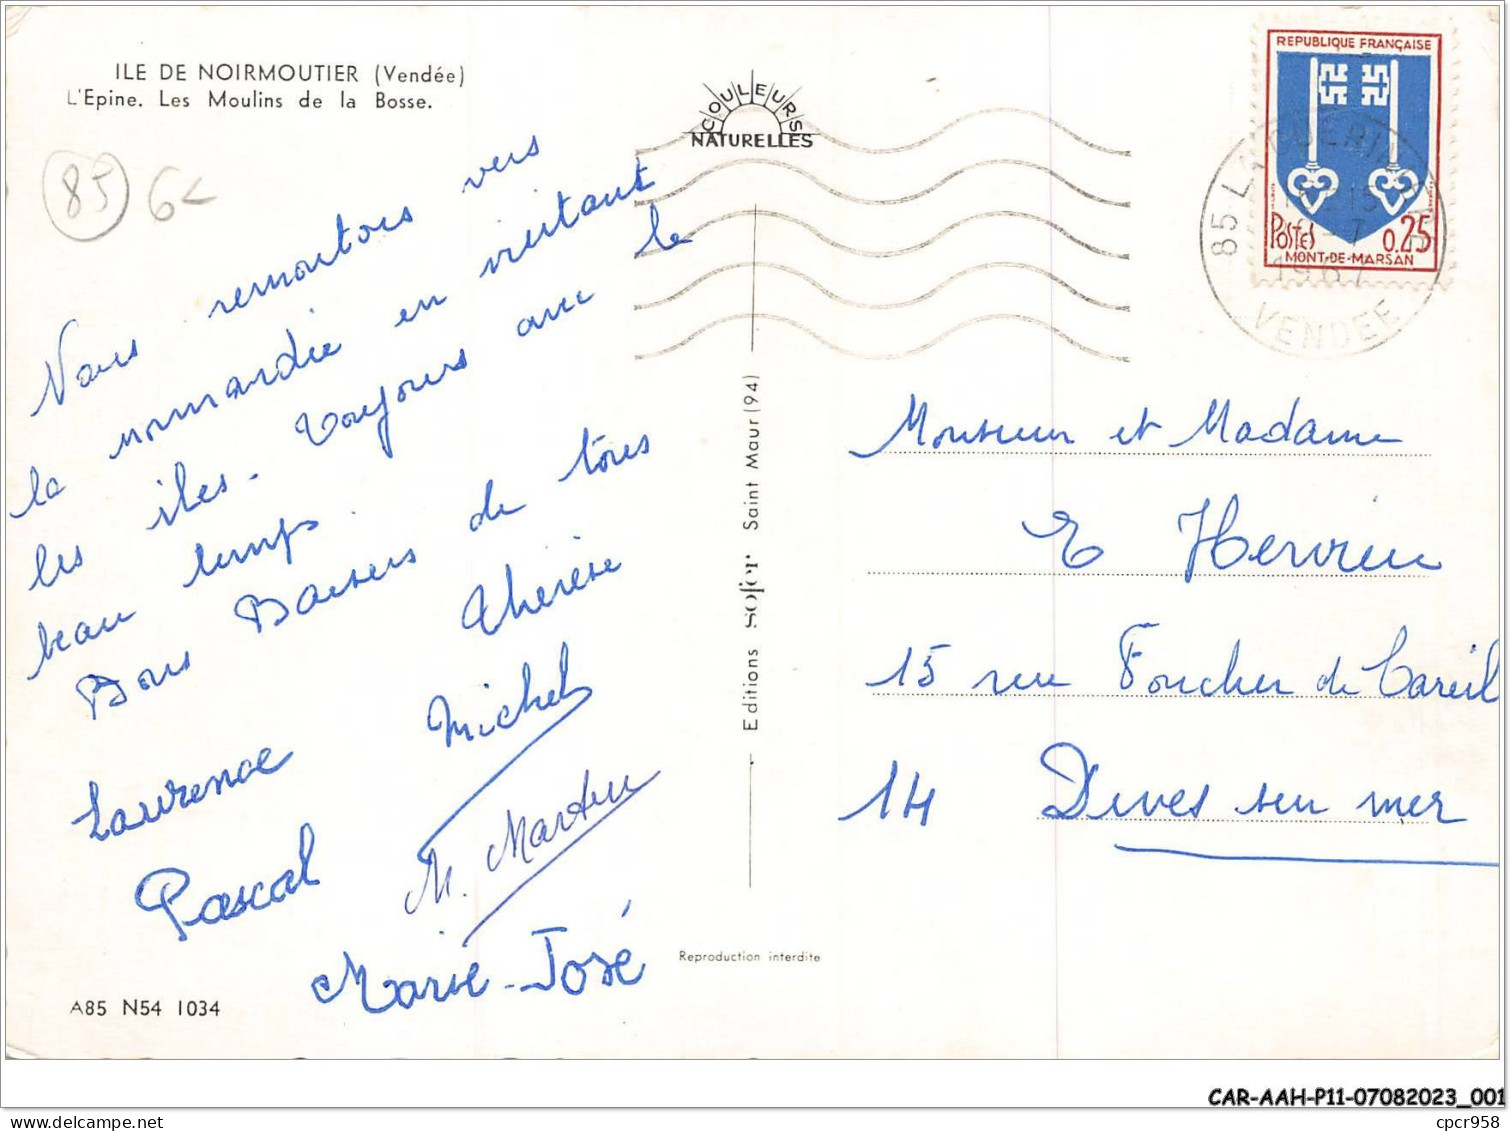 ILE DE NOIRMOUTIER (Vendée)
L'Epine. Les Moulins de la Bosse.
85 6
Nous remontons vers
la normandie en visitant
les iles. toujours avec le
beau temps.
Bons Baisers de tous
Thérèse
Michel
Laurence
M. Martin
Pascal
Marie-José
A85 N54 1034
COULEURS
NATURELLES
Editions sofer Saint Maur (94)
Reproduction interdite
REPUBLIQUE FRANÇAISE
POSTES 0.25
MONT-DE-MARSAN
85 LA GUERINIERE
15
7
1967
VENDEE
Monsieur et Madame
E Hervieu
15 rue Foucher de Careil
14 Dives sur mer
CAR-AAH-P11-07082023_001
cpcr958